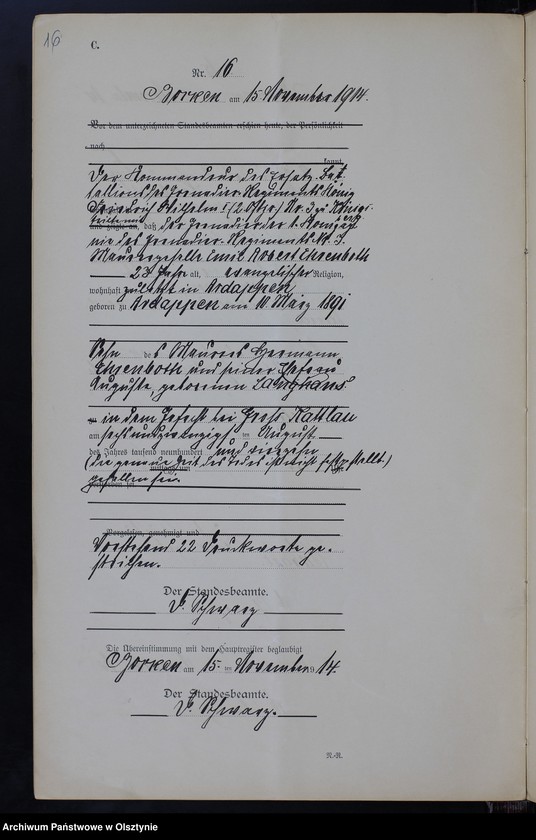 16
C.
Nr. 16
Borken am 15 November 1914.
Vor dem unterzeichneten Standesbeamten erschien heute, der Persönlichkeit
nach
kannt,
Der Kommandeur des Ersatz-Bat-
taillons des Grenadier-Regiments König
Friedrich Wilhelm I (2. Ostpr.) Nr. 3 zu
teilte mit
und zeigte an, daß der Grenadier der 1. Kompag-
nie des Grenadier-Regiments Nr. 3.
Maurergeselle Emil Robert Ehrenboth
23 Jahre alt, evangelischer Religion,
wohnhaft zuletzt in Ardappen
geboren zu Ardappen am 10 März 1891
Sohn des Maurers Hermann
Ehrenboth und seiner Ehefrau
Auguste, geborenen Langhans
in dem Gefecht bei Groß Kattlau
am sechsundzwanzigsten August
des Jahres tausend neunhundert und vierzehn
(die genaue Zeit des Todes ist nicht festgestellt.)
gefallen sei.
Vorgelesen, genehmigt und
Vorstehend 22 Druckworte ge-
strichen.
Der Standesbeamte.
Schwarz
Die Übereinstimmung mit dem Hauptregister beglaubigt
Borken am 15. November 1914.
Der Standesbeamte.
Schwarz.
R.-R.
Archiwum Państwowe w Olsztynie